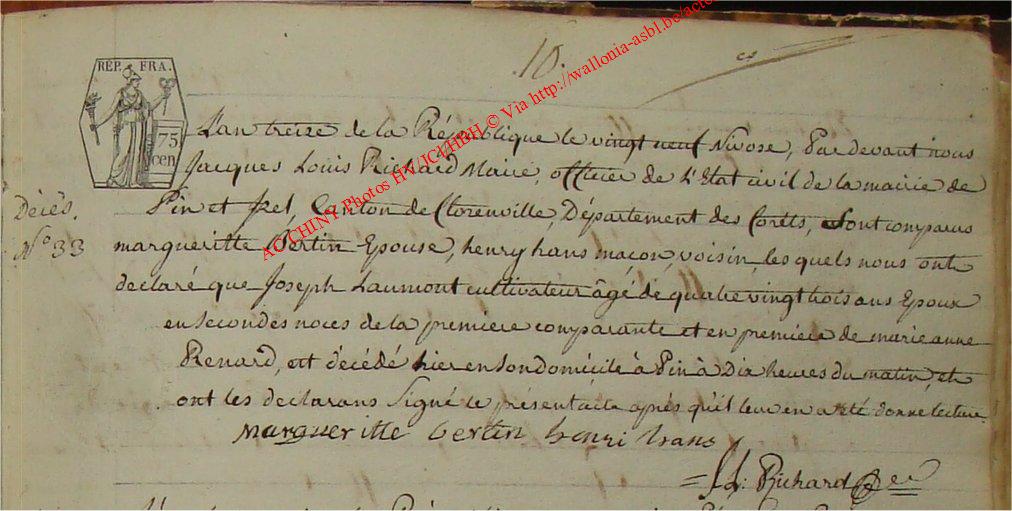 .10.
REP. FRA.
75
cen
L'an treize de la République le vingt neuf Nivose, Par devant nous
Jacques Louis Richard Maire, officier de l'Etat civil de la mairie de
Décès. Pin et Izel, Canton de florenville, Département des forets, sont comparus
N.° 33 margueritte Bertin Epouse, henry hans maçon, voisin, les quels nous ont
declaré que Joseph Laumont cultivateur âgé de quatre vingt trois ans Epoux
en secondes noces de la premiere comparante et en premiere de marie anne
Renard, est décédé hier en son domicile à Pin à Dix heures du matin, et
ont les declarans Signé le présent acte après qu'il leur en a eté donné lecture
margueritte bertin henri hans
J L: Richard
ACICHINY Photos HV/JCL/HBH © Via http://wallonia-asbl.be/acte